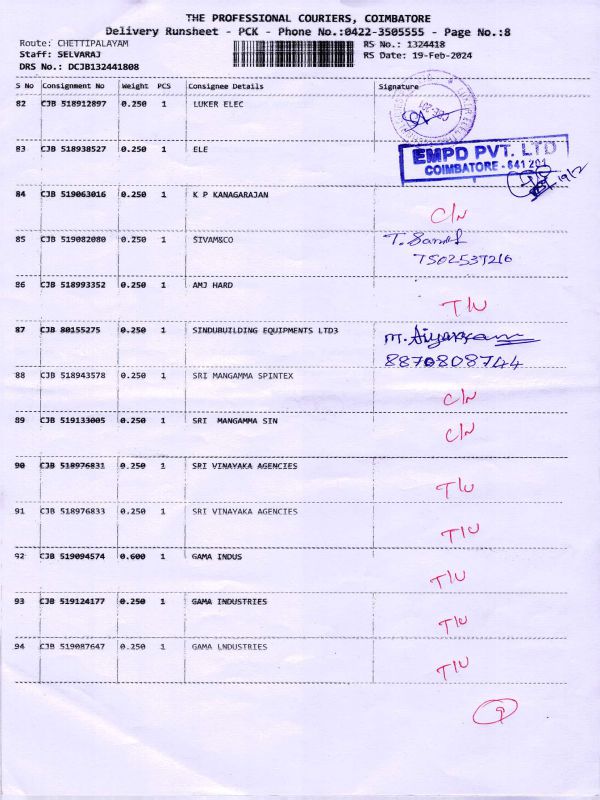 THE PROFESSIONAL COURIERS, COIMBATORE
Delivery Runsheet - PCK - Phone No.:0422-3505555 - Page No.:8
Route: CHETTIPALAYAM RS No.: 1324418
Staff: SELVARAJ RS Date: 19-Feb-2024
DRS No.: DCJB132441808
S No Consignment No Weight PCS Consignee Details Signature
82 CJB 518912897 0.250 1 LUKER ELEC
83 CJB 518938527 0.250 1 ELE
EMPD PVT. LTD
COIMBATORE - 641 201
19/2
84 CJB 519063016 0.250 1 K P KANAGARAJAN C/N
85 CJB 519082080 0.250 1 SIVAM&CO T.
7502537216
86 CJB 518993352 0.250 1 AMJ HARD T/U
87 CJB 80155275 0.250 1 SINDUBUILDING EQUIPMENTS LTD3 M.
8870808744
88 CJB 518943578 0.250 1 SRI MANGAMMA SPINTEX C/N
89 CJB 519133005 0.250 1 SRI MANGAMMA SIN C/N
90 CJB 518976831 0.250 1 SRI VINAYAKA AGENCIES T/U
91 CJB 518976833 0.250 1 SRI VINAYAKA AGENCIES T/U
92 CJB 519094574 0.600 1 GAMA INDUS T/U
93 CJB 519124177 0.250 1 GAMA INDUSTRIES T/U
94 CJB 519087647 0.250 1 GAMA LNDUSTRIES T/U
9